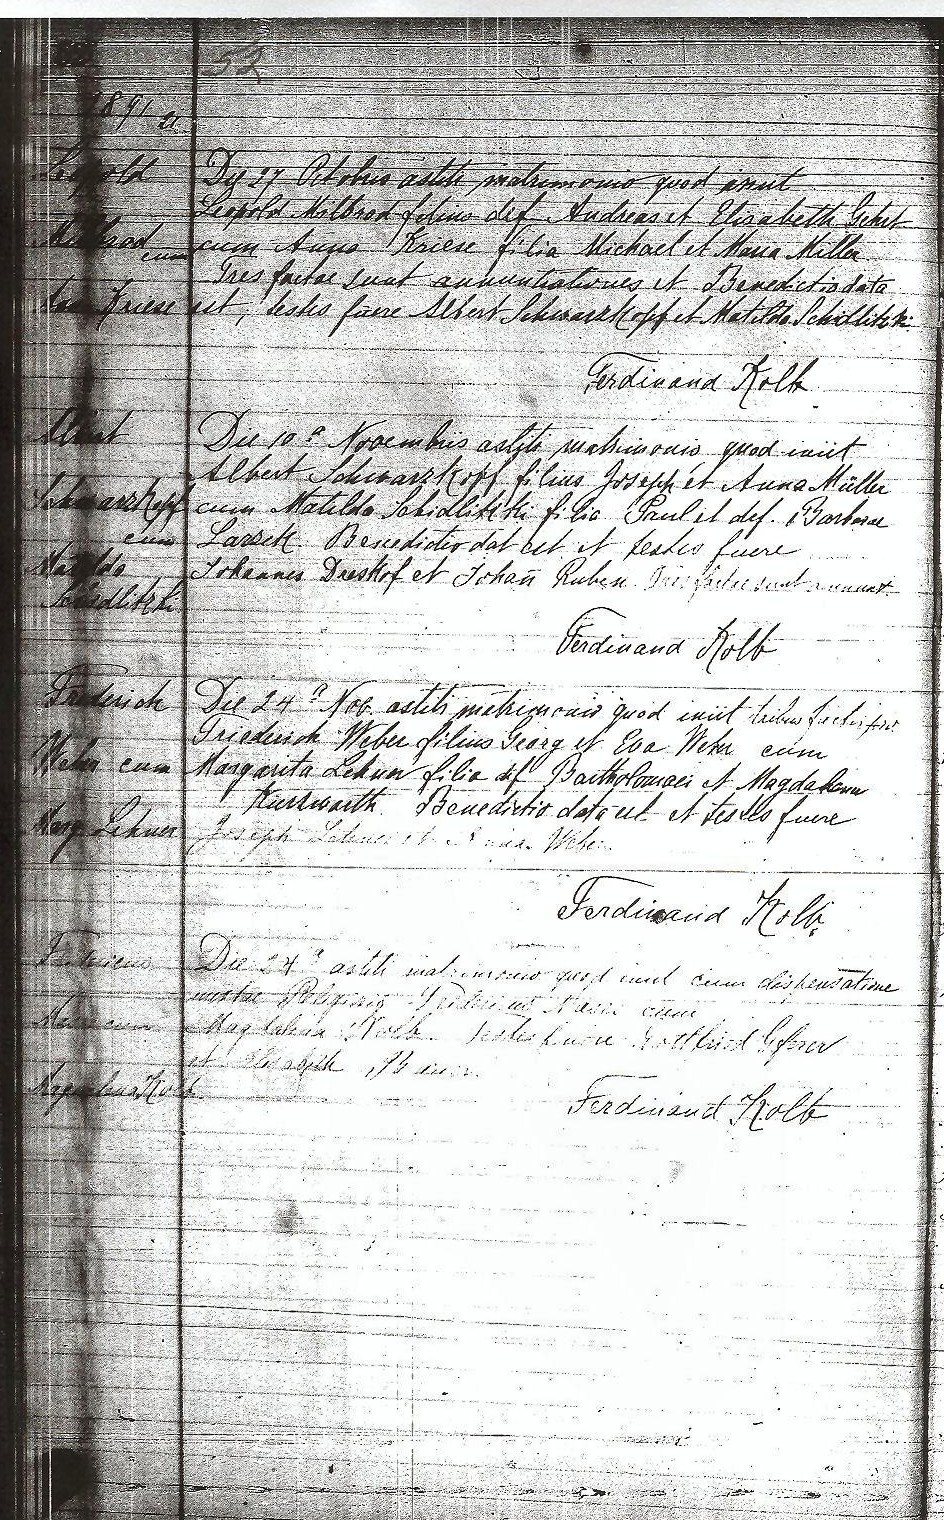 52
1891
Leopold
Milbrad
cum
Anna Kriese
Die 27 Octobris astiti matrimonio quod iniit
Leopold Milbrod filius def Andreas et Elizabeth
cum Anna Kriese filia Michael et Maria Miller
Tres factae sunt annuntiationes et Benedictio data
est, testis fuere Albert Schwarzkopf et Matilda Schidlitzki
Ferdinand Kolb
Albert
Schwarzkopf
cum
Matilda
Schidlitzki
Die 10ª Novembris astiti matrimonio quod iniit
Albert Schwarzkopf filius Joseph et Anna Müller
cum Matilda Schidlitzki filia Paul et def. Barbarae
Benedictio dat est et testes fuere
Johannes et Johañ Ruben Tres factae sunt annunt.
Ferdinand Kolb
Frederich
Weber cum
Marg Lehner
Die 24ª Nob. astiti matrimonio quod iniit tribus factis
Friederich Weber filius Georg et Eva Weber cum
Margarita Lehner filia def Bartholomaei et Magdalena
Benedictio data est et testes fuere
Joseph Lehner et Anna Weber
Ferdinand Kolb
cum
Magdalena Kolb
Die 24ª astiti matrimonio quod iniit cum dispensatione
cum
Magdalena Kolb testes fuere Gottfried
et Elisabeth
Ferdinand Kolb